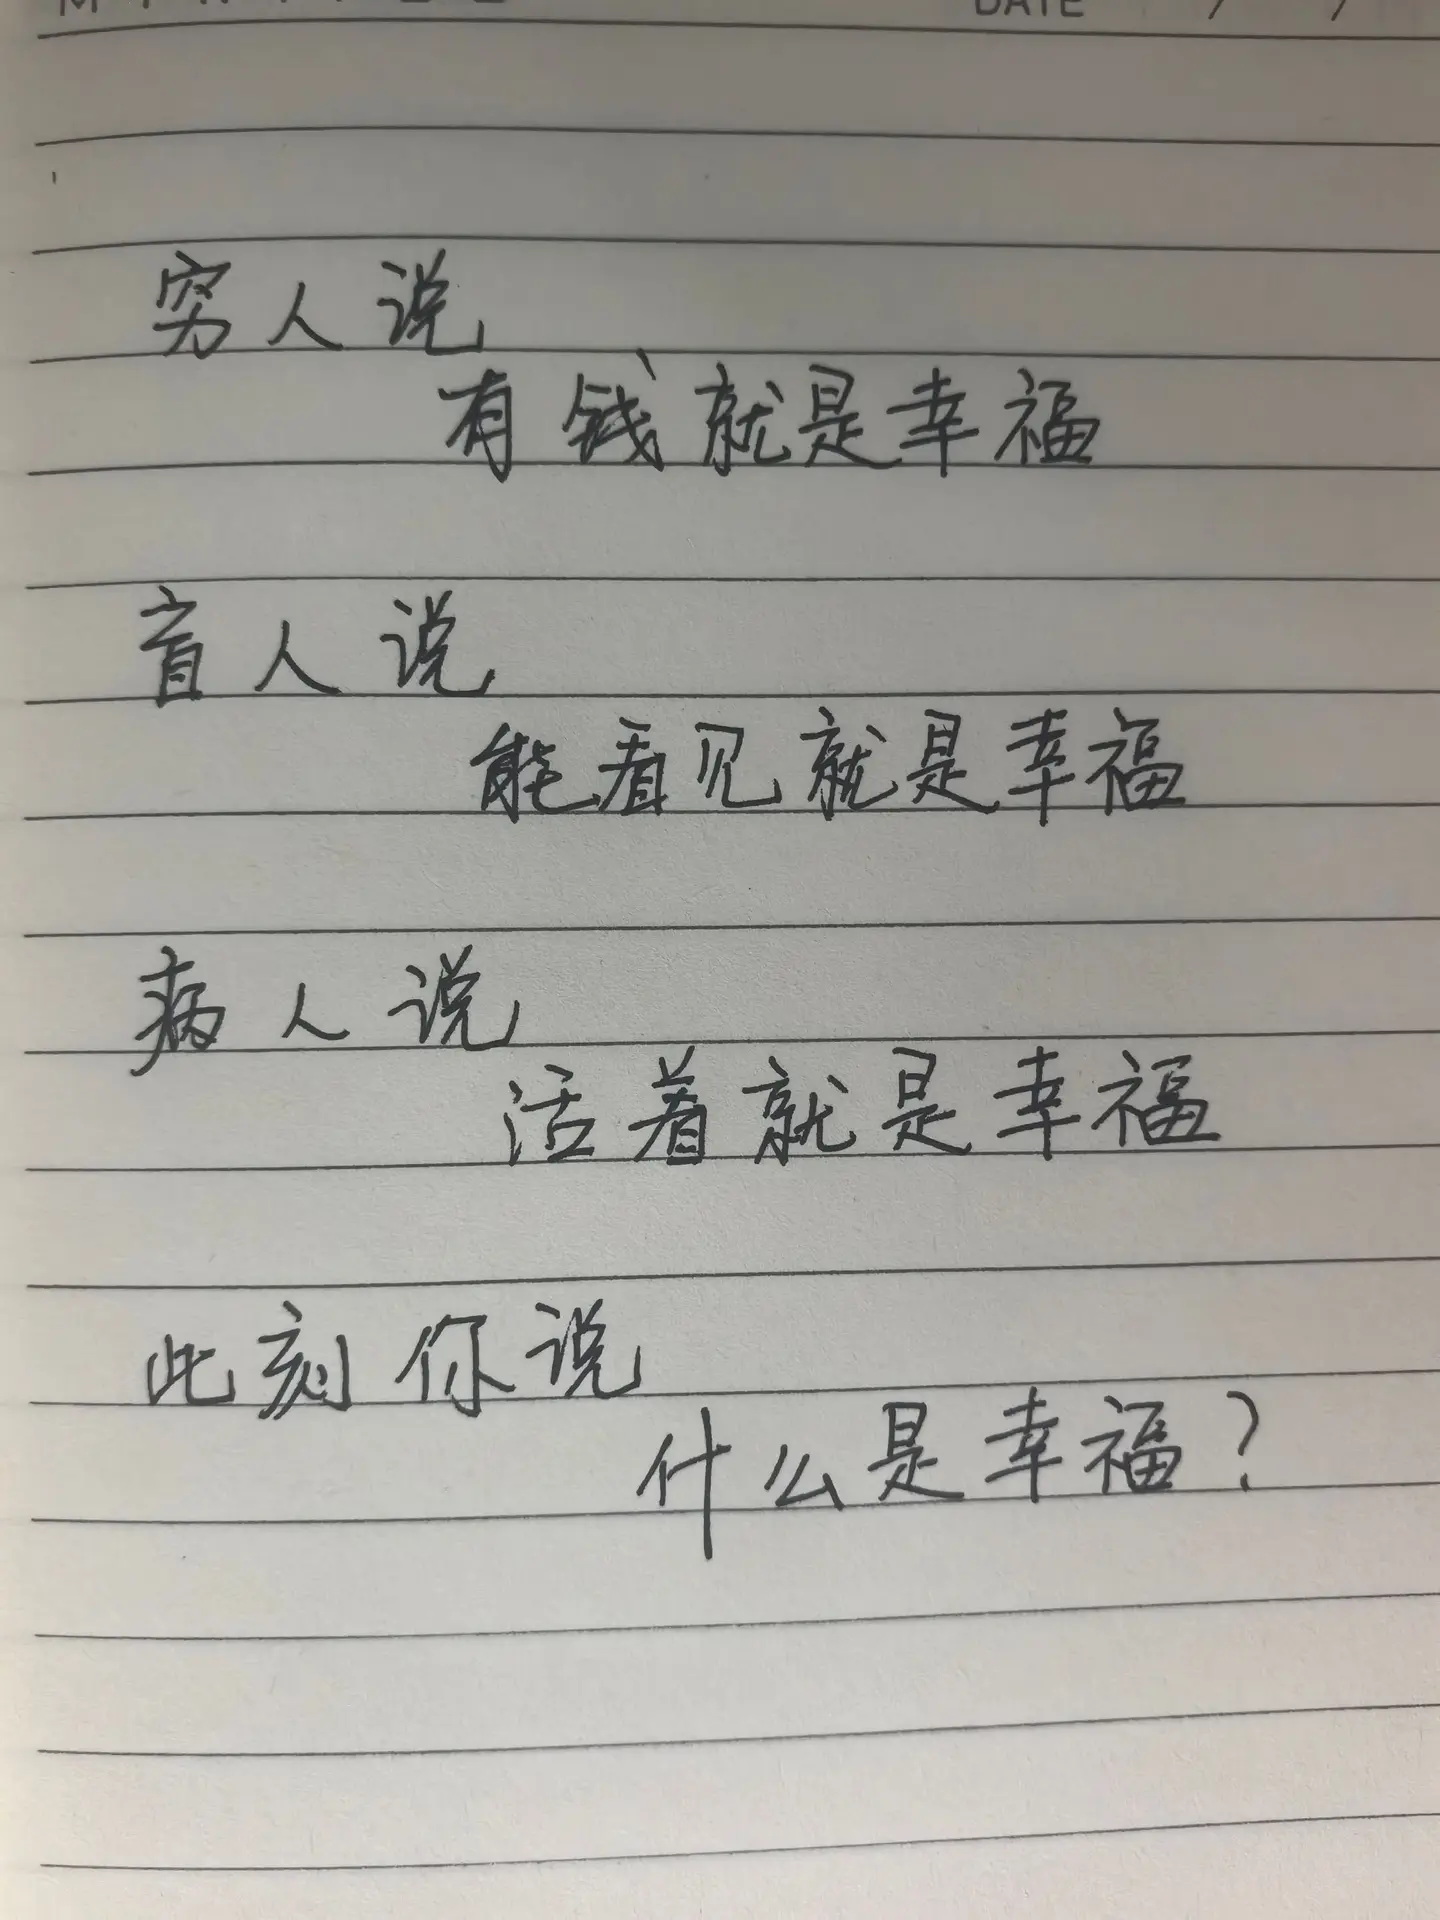 DATE / /
穷人说
有钱就是幸福
盲人说
能看见就是幸福
病人说
活着就是幸福
此刻你说
什么是幸福?